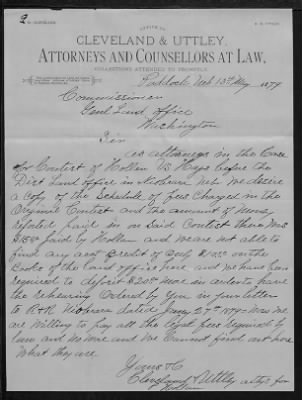 2
OFFICE OF
CLEVELAND & UTTLEY,
ATTORNEYS AND COUNSELLORS AT LAW,
COLLECTIONS ATTENDED TO PROMPTLY.
Paddock Neb 13th May 1879
Commissioner
Genl Land Office
Washington
Sir
as attorneys in the Case
for Contest of Hollen vs Hays before the
Dist Land office in Niobrara Neb We desire
a Copy of the Schedule of fees Charged in the
Original Contest and the amount of money
reported paid in on Said Contest there was
paid by Hollen and we are not able to
find any Credit of Only on the
Books of the Land office here and we have been
required to deposit $20 more in order to have
the rehearing Ordered by You in your letter
to R & R Niobrara dated Jany 27th 1879 Now we
are Willing to pay all the legal fees required by
law and no more and We Cannot find out here
What they are
Yours &c
Cleveland & Uttley attys for
Hollen